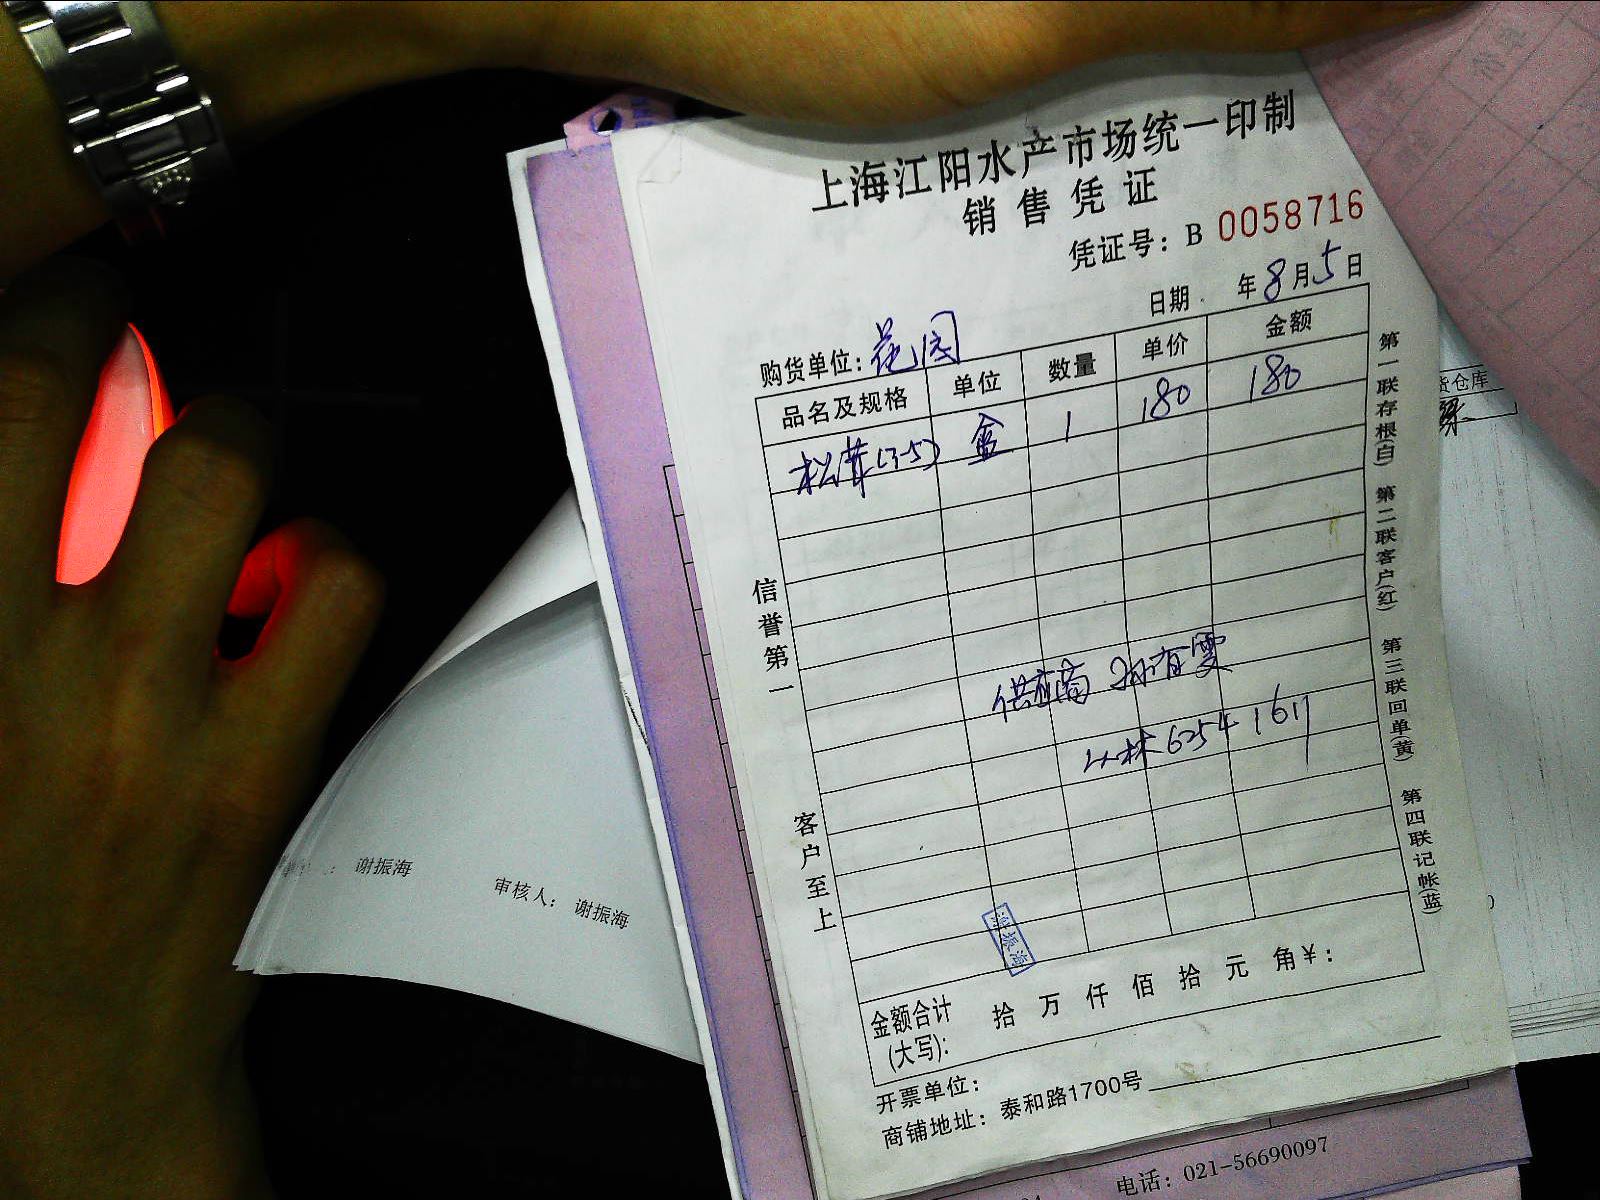 上海江阳水产市场统一印制
销售凭证
凭证号: B 0058716
日期 年 8 月 5 日
购货单位: 花园
品名及规格 单位 数量 单价 金额
松茸(3-5) 盒 1 180 180
供应商 孙有雯
6254 1617
信誉第一
客户至上
谢振海
金额合计 拾 万 仟 佰 拾 元 角¥:
(大写):
开票单位:
商铺地址: 泰和路1700号
第一联存根(白) 第二联客户(红) 第三联回单(黄) 第四联记帐(蓝)
电话: 021-56690097
: 谢振海
审核人: 谢振海
仓库